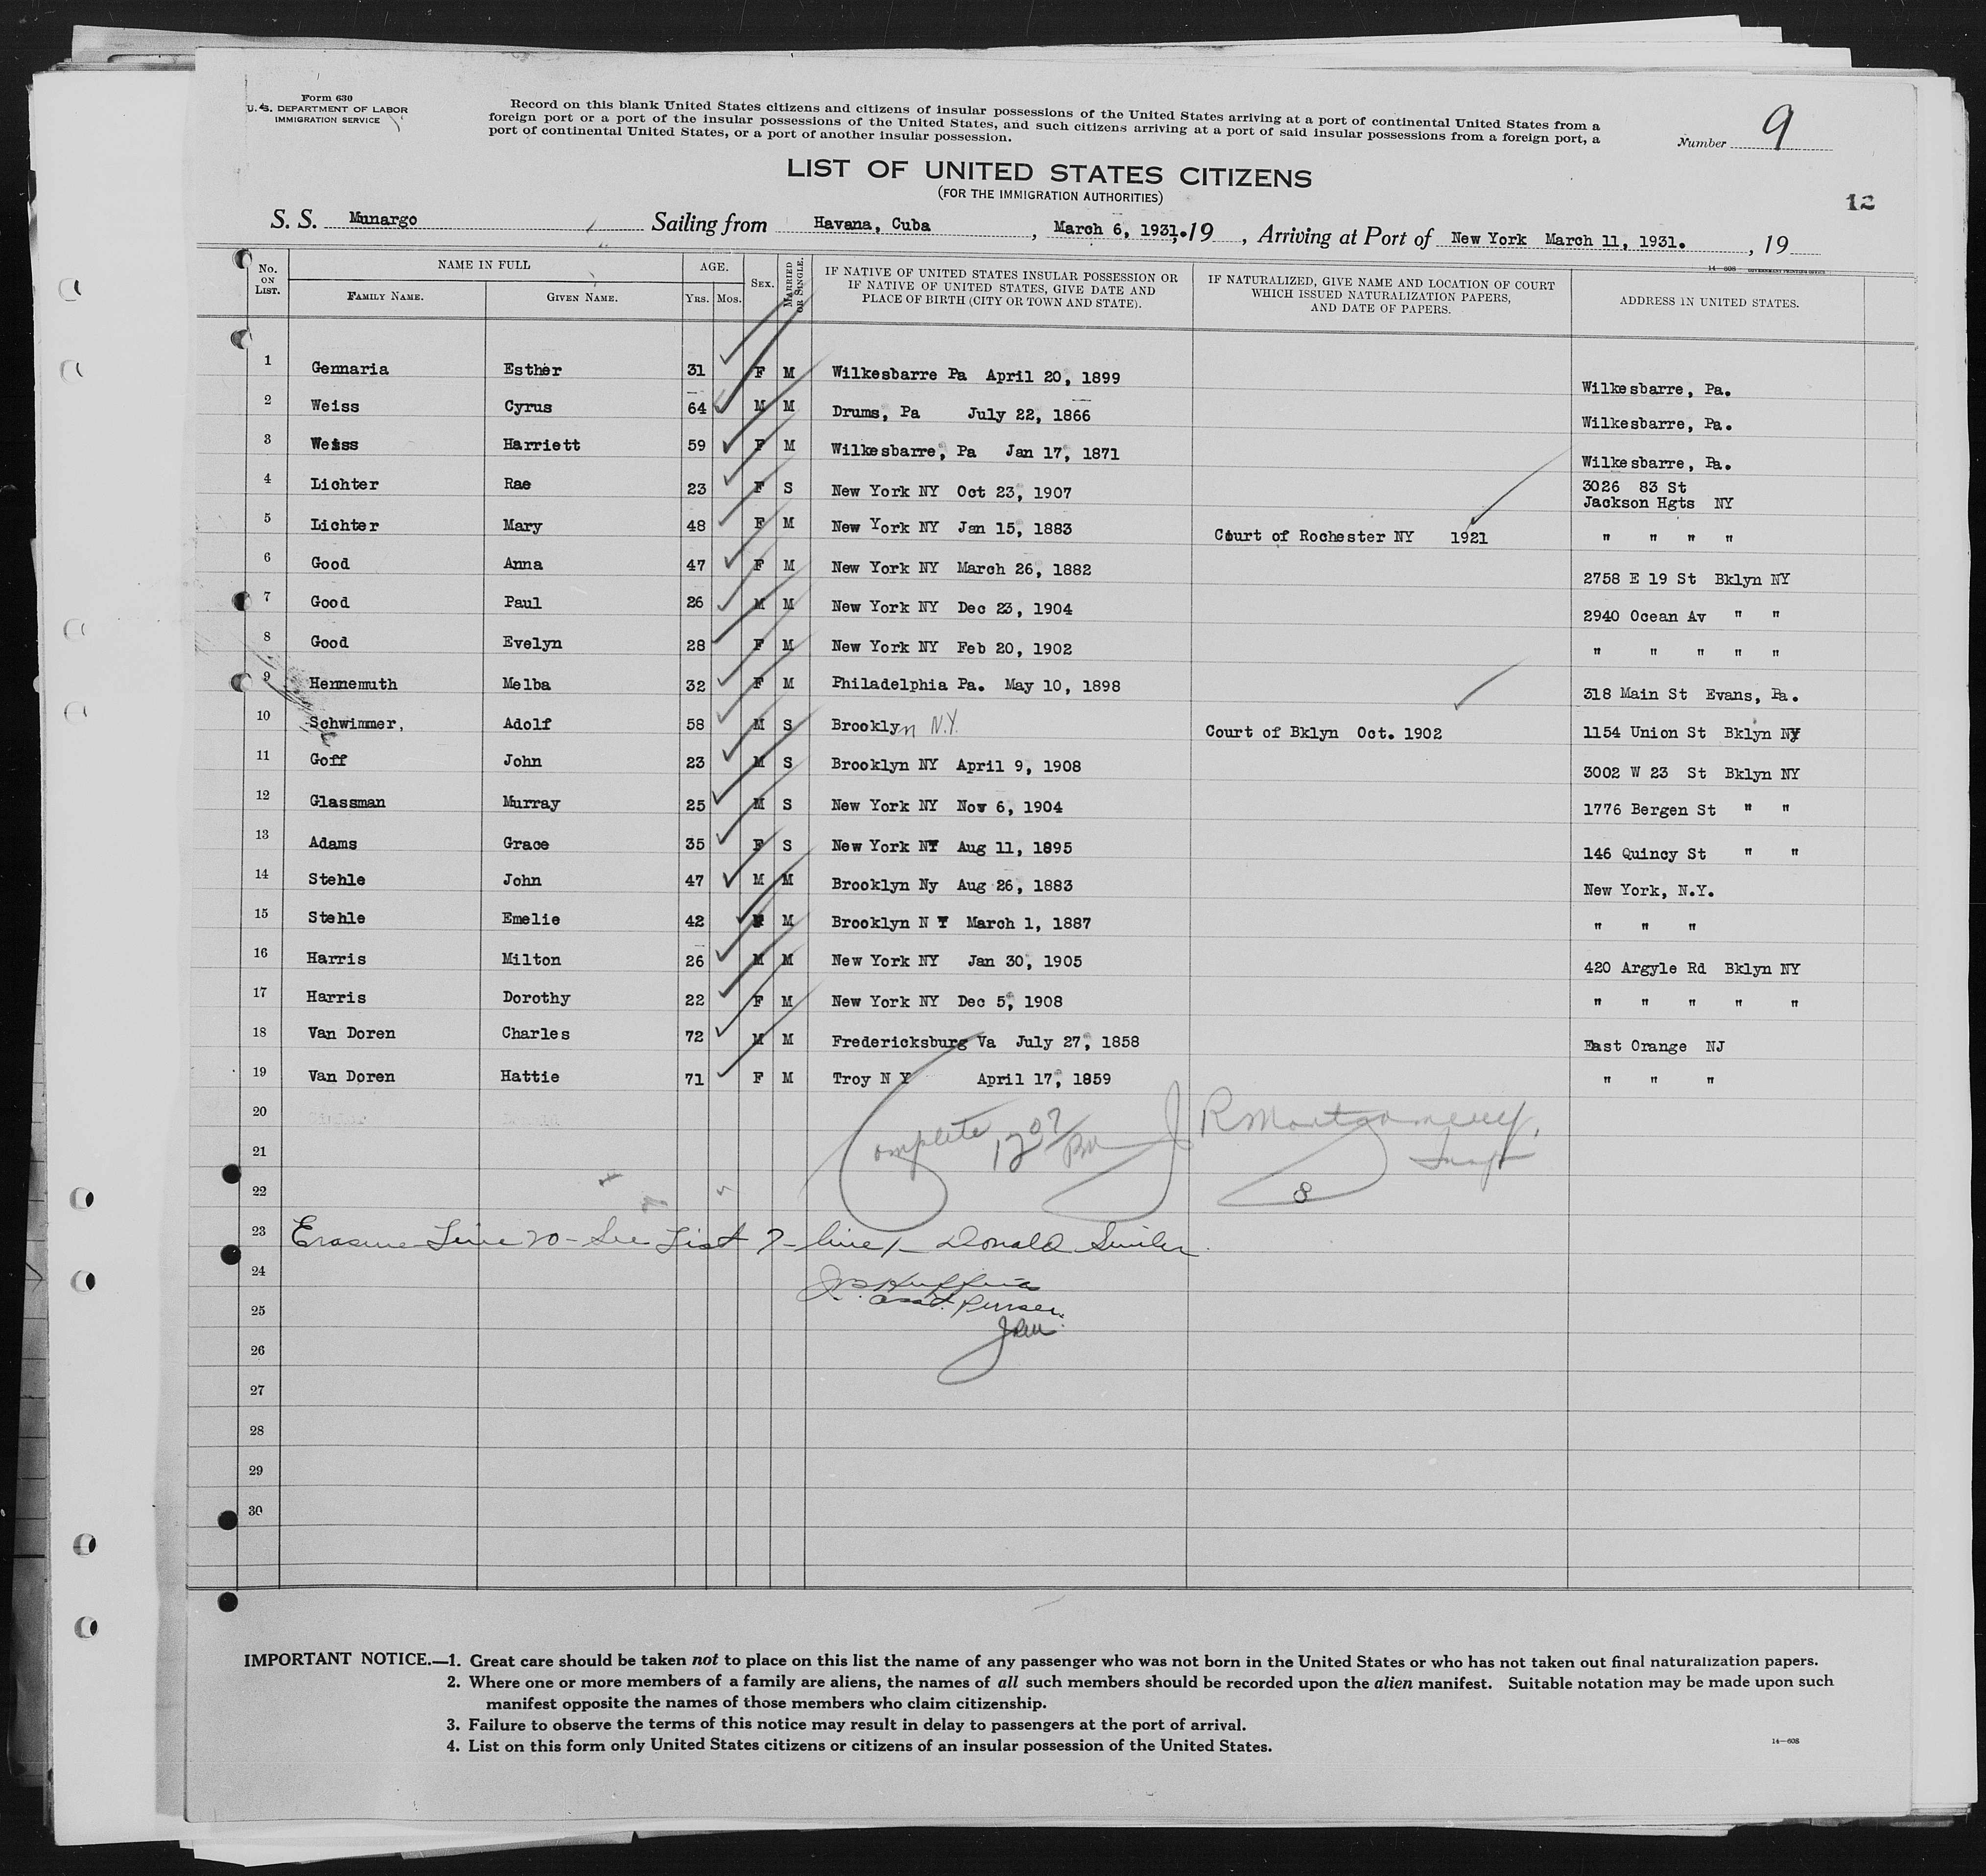 Form 630
U. S. DEPARTMENT OF LABOR
IMMIGRATION SERVICE
Record on this blank United States citizens and citizens of insular possessions of the United States arriving at a port of continental United States from a
foreign port or a port of the insular possessions of the United States, and such citizens arriving at a port of said insular possessions from a foreign port, a
port of continental United States, or a port of another insular possession.
Number 9
LIST OF UNITED STATES CITIZENS
(FOR THE IMMIGRATION AUTHORITIES)
12
S. S. Munargo Sailing from Havana, Cuba , March 6, 1931. 19 , Arriving at Port of New York March 11, 1931. , 19
14—608 GOVERNMENT PRINTING OFFICE
No. ON LIST. NAME IN FULL AGE. SEX. MARRIED OR SINGLE. IF NATIVE OF UNITED STATES INSULAR POSSESSION OR IF NATIVE OF UNITED STATES, GIVE DATE AND PLACE OF BIRTH (CITY OR TOWN AND STATE). IF NATURALIZED, GIVE NAME AND LOCATION OF COURT WHICH ISSUED NATURALIZATION PAPERS, AND DATE OF PAPERS. ADDRESS IN UNITED STATES.
FAMILY NAME. GIVEN NAME. YRS. MOS.
1 Gennaria Esther 31 F M Wilkesbarre Pa April 20, 1899 Wilkesbarre, Pa.
2 Weiss Cyrus 64 M M Drums, Pa July 22, 1866 Wilkesbarre, Pa.
3 Weiss Harriett 59 F M Wilkesbarre, Pa Jan 17, 1871 Wilkesbarre, Pa.
4 Lichter Rae 23 F S New York NY Oct 23, 1907 3026 83 St
Jackson Hgts NY
5 Lichter Mary 48 F M New York NY Jan 15, 1883 Court of Rochester NY 1921 " " " "
6 Good Anna 47 F M New York NY March 26, 1882 2758 E 19 St Bklyn NY
7 Good Paul 26 M M New York NY Dec 23, 1904 2940 Ocean Av " "
8 Good Evelyn 28 F M New York NY Feb 20, 1902 " " " " "
9 Hennemuth Melba 32 F M Philadelphia Pa. May 10, 1898 318 Main St Evans, Pa.
10 Schwimmer, Adolf 58 M S Brooklyn N.Y. Court of Bklyn Oct. 1902 1154 Union St Bklyn NY
11 Goff John 23 M S Brooklyn NY April 9, 1908 3002 W 23 St Bklyn NY
12 Glassman Murray 25 M S New York NY Nov 6, 1904 1776 Bergen St " "
13 Adams Grace 35 F S New York NY Aug 11, 1895 146 Quincy St " "
14 Stehle John 47 M M Brooklyn Ny Aug 26, 1883 New York, N.Y.
15 Stehle Emelie 42 F M Brooklyn N Y March 1, 1887 " " "
16 Harris Milton 26 M M New York NY Jan 30, 1905 420 Argyle Rd Bklyn NY
17 Harris Dorothy 22 F M New York NY Dec 5, 1908 " " " " "
18 Van Doren Charles 72 M M Fredericksburg Va July 27, 1858 East Orange NJ
19 Van Doren Hattie 71 F M Troy N Y April 17, 1859 " " "
20
Complete 12 07 PM J R Montgomery,
21 Insp
22 8
23 Erasure Line 20 - See List 7 - line 1 - Donald
24
asst. Purser.
25
26
27
28
29
30
IMPORTANT NOTICE.—1. Great care should be taken not to place on this list the name of any passenger who was not born in the United States or who has not taken out final naturalization papers.
2. Where one or more members of a family are aliens, the names of all such members should be recorded upon the alien manifest. Suitable notation may be made upon such
manifest opposite the names of those members who claim citizenship.
3. Failure to observe the terms of this notice may result in delay to passengers at the port of arrival.
4. List on this form only United States citizens or citizens of an insular possession of the United States.
14—608